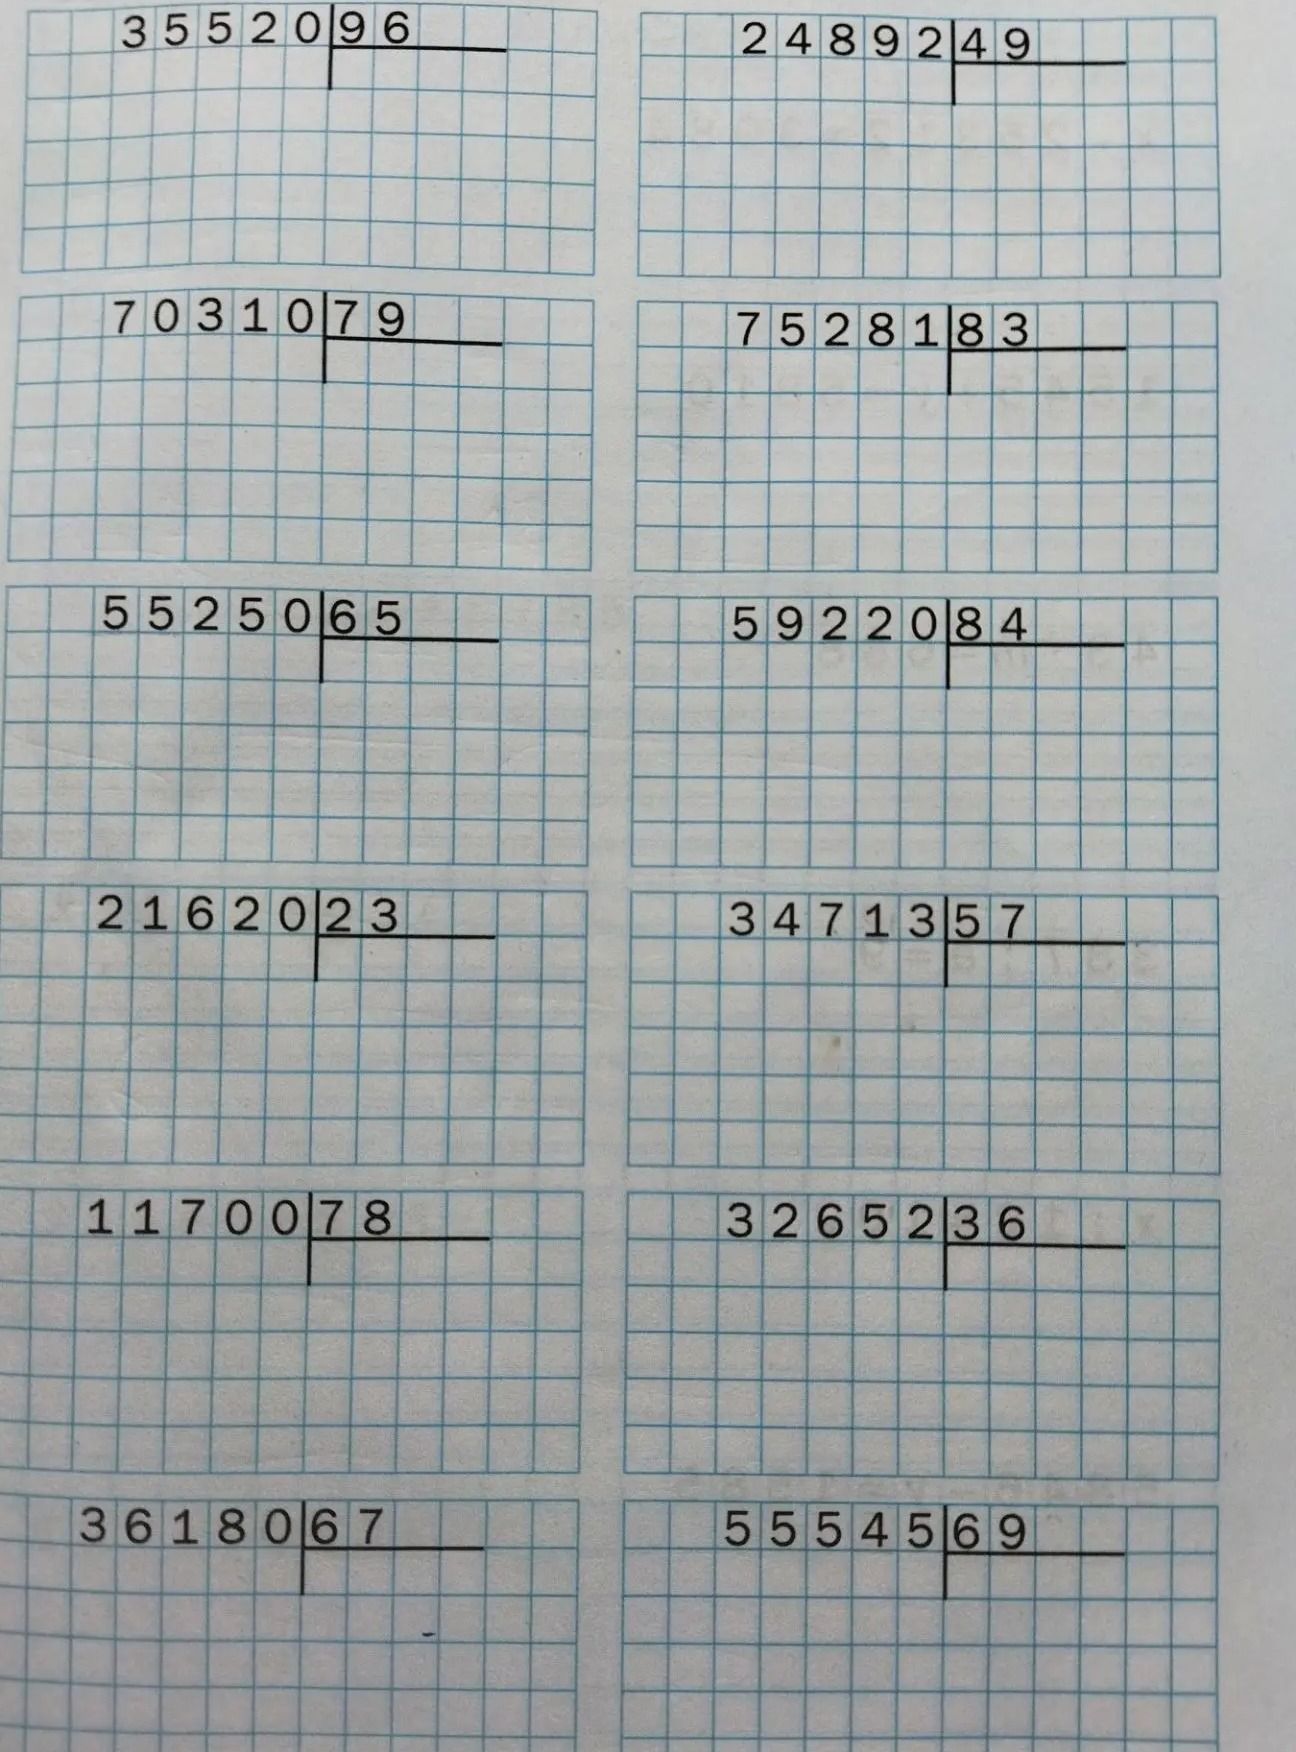 35520|96
24892|49
70310|79
75281|83
55250|65
59220|84
21620|23
34713|57
11700|78
32652|36
36180|67
55545|69